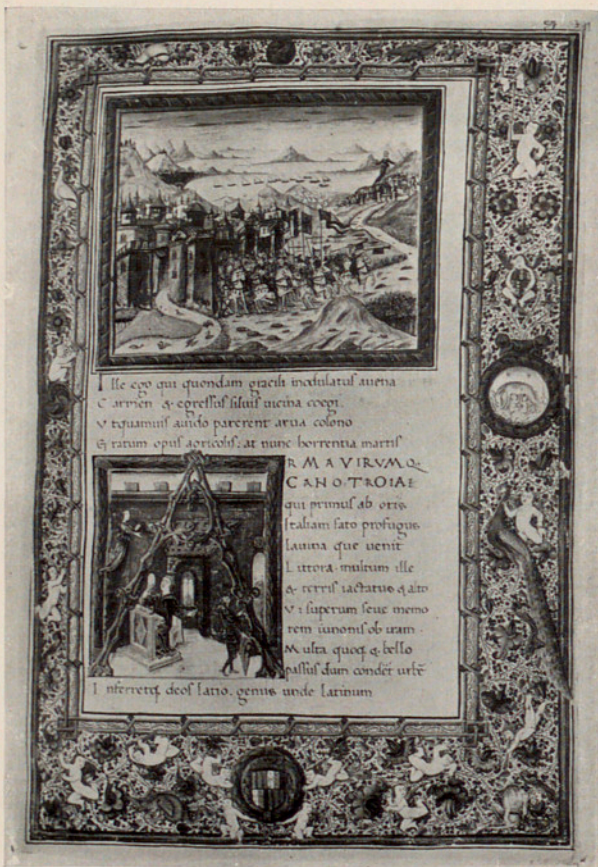 Ille ego qui quondam gracili modulatus auena
Carmen & egressus siluis uicina coegi.
Vt quamuis auido parerent arua colono
Gratum opus agricolis: at nunc horrentia martis
RMAVIRVMQ
CANO.TROIAE
qui primus ab oris
Italiam fato profugus
lauina que uenit
Littora. multum ille
& terris iactatus & alto
Vi superum seue memo
rem iunonis ob iram.
Multa quoq; & bello
passus dum conderet urbē
Inferretq; deos latio. genus unde latinum